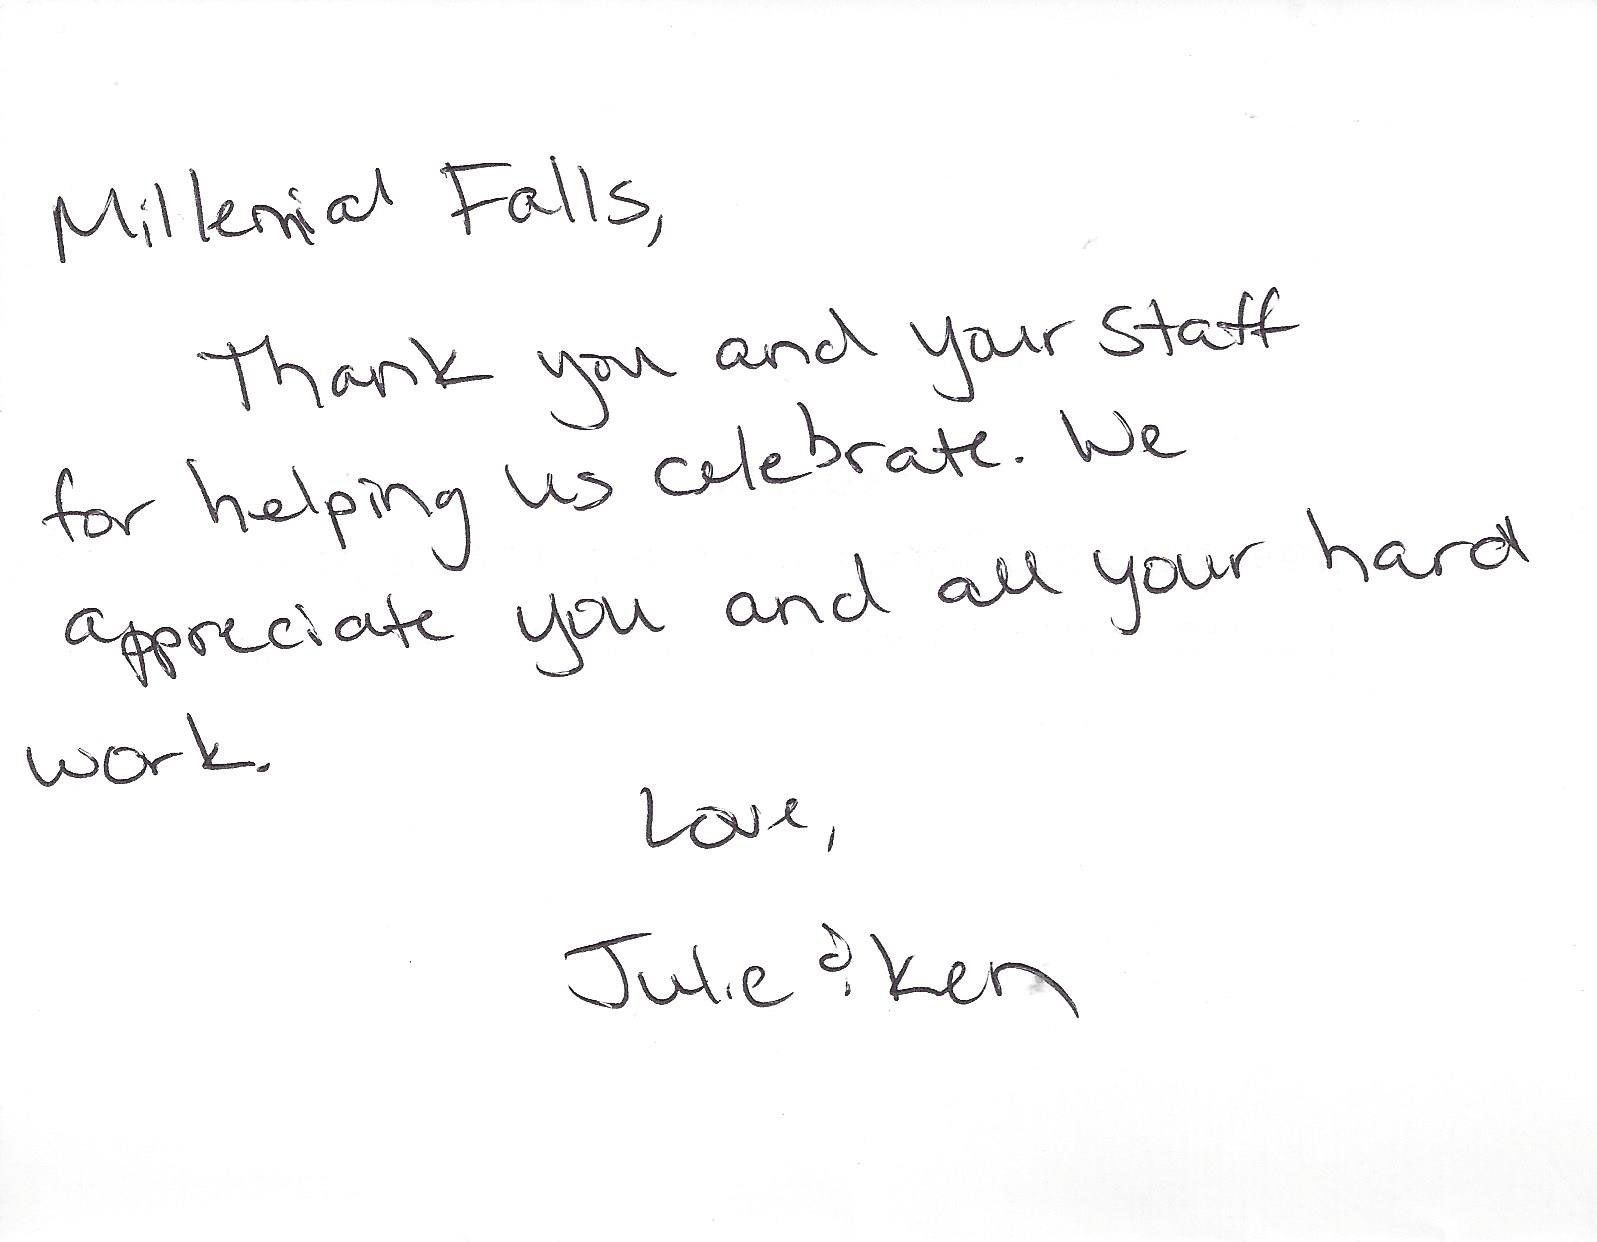 Millenial Falls,
Thank you and your staff
for helping us celebrate. We
appreciate you and all your hard
work.
Love,
Julie & Ken